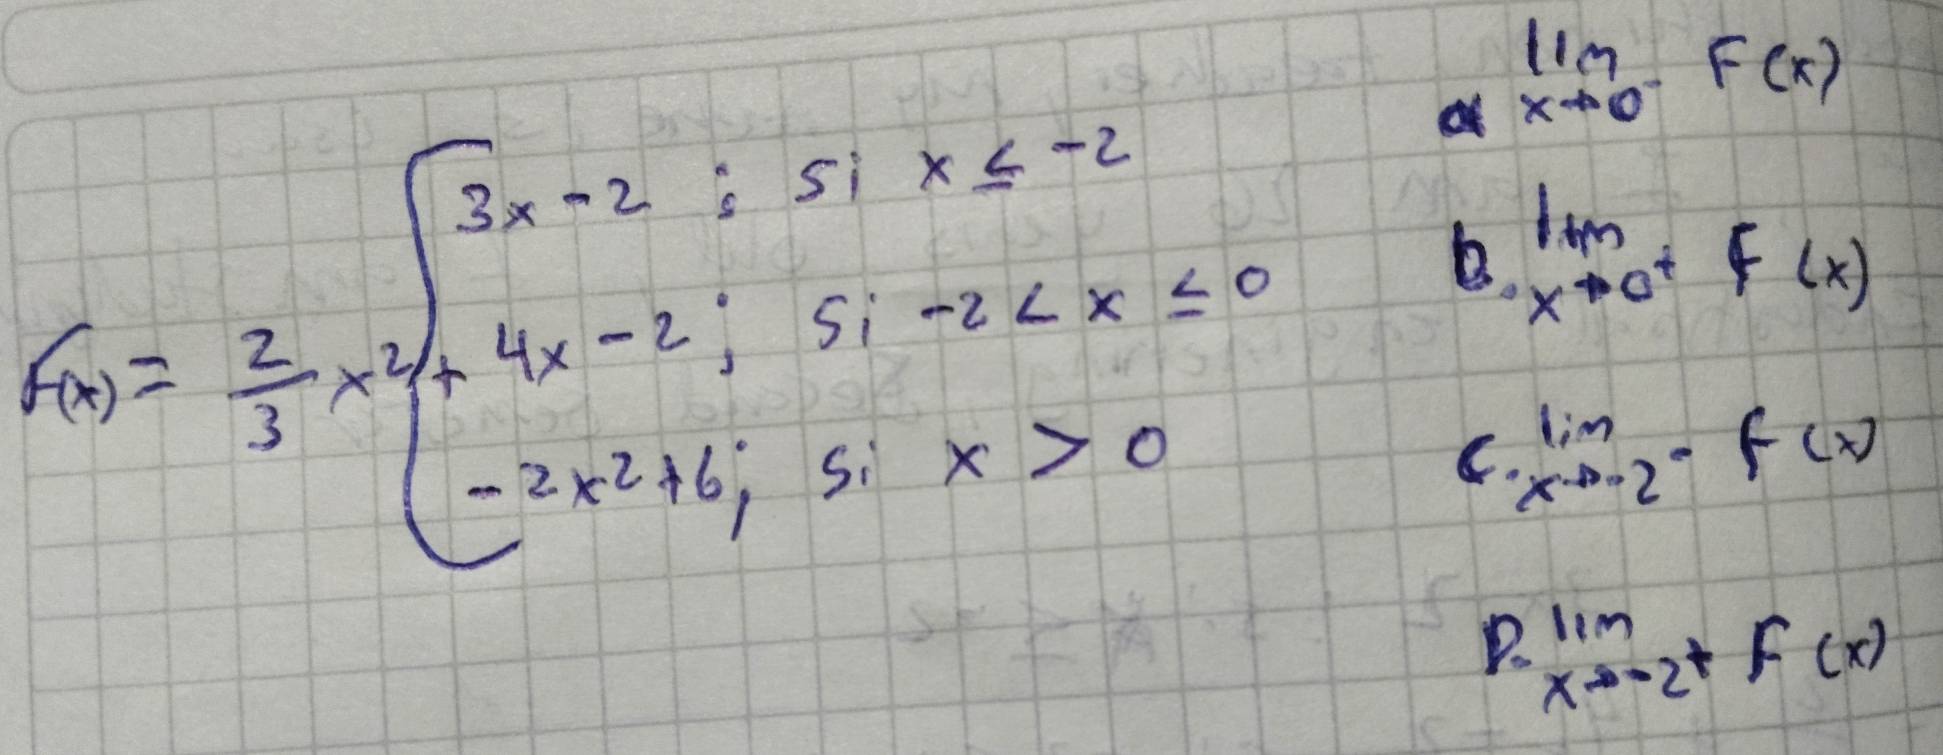 3x - 2 ; si x ≤ -2
F(x) = 2/3 x² + 4x - 2 ; si -2 < x ≤ 0
-2x² + 6 ; si x > 0
a lim x→0⁻ F(x)
b. lim x→0⁺ F(x)
c. lim x→-2⁻ F(x)
D. lim x→-2⁺ F(x)